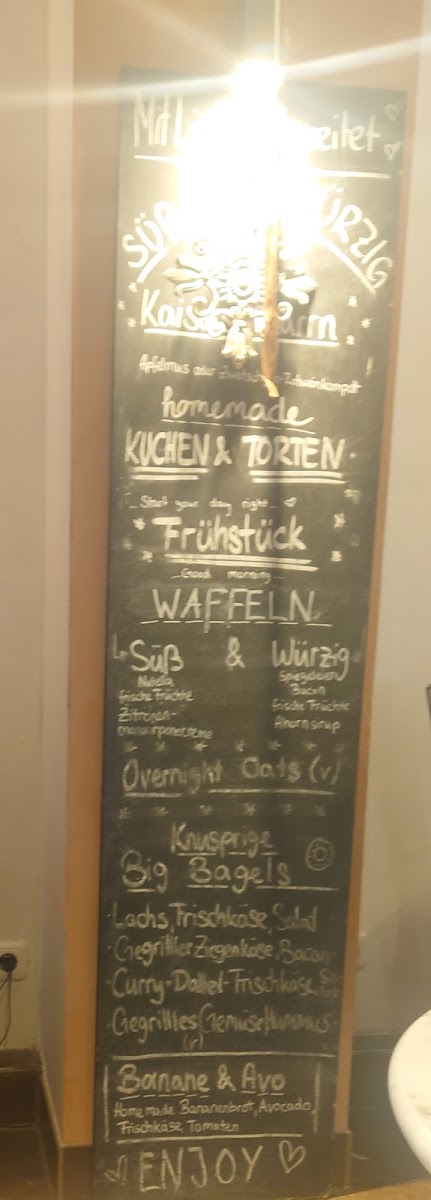 Mit
SÜß WÜRZIG
Kaiserschmarrn
Apfelmus oder Zwetschgen-Rotweinkompott
homemade
KUCHEN & TORTEN
Start your day right...
Frühstück
...Good morning...
WAFFELN
Süß & Würzig
Nutella Spiegeleier
frische Früchte Bacon
Zitronen- frische Früchte
mascarponecreme Ahornsirup
Overnight Oats (v)
Knusprige
Big Bagels
Lachs, Frischkäse, Salat
Gegrillter Ziegenkäse, Bacon
Curry-Dattel-Frischkäse,
Gegrilltes Gemüse Hummus
(v)
Banane & Avo
Homemade Bananenbrot, Avocado,
Frischkäse, Tomaten
ENJOY